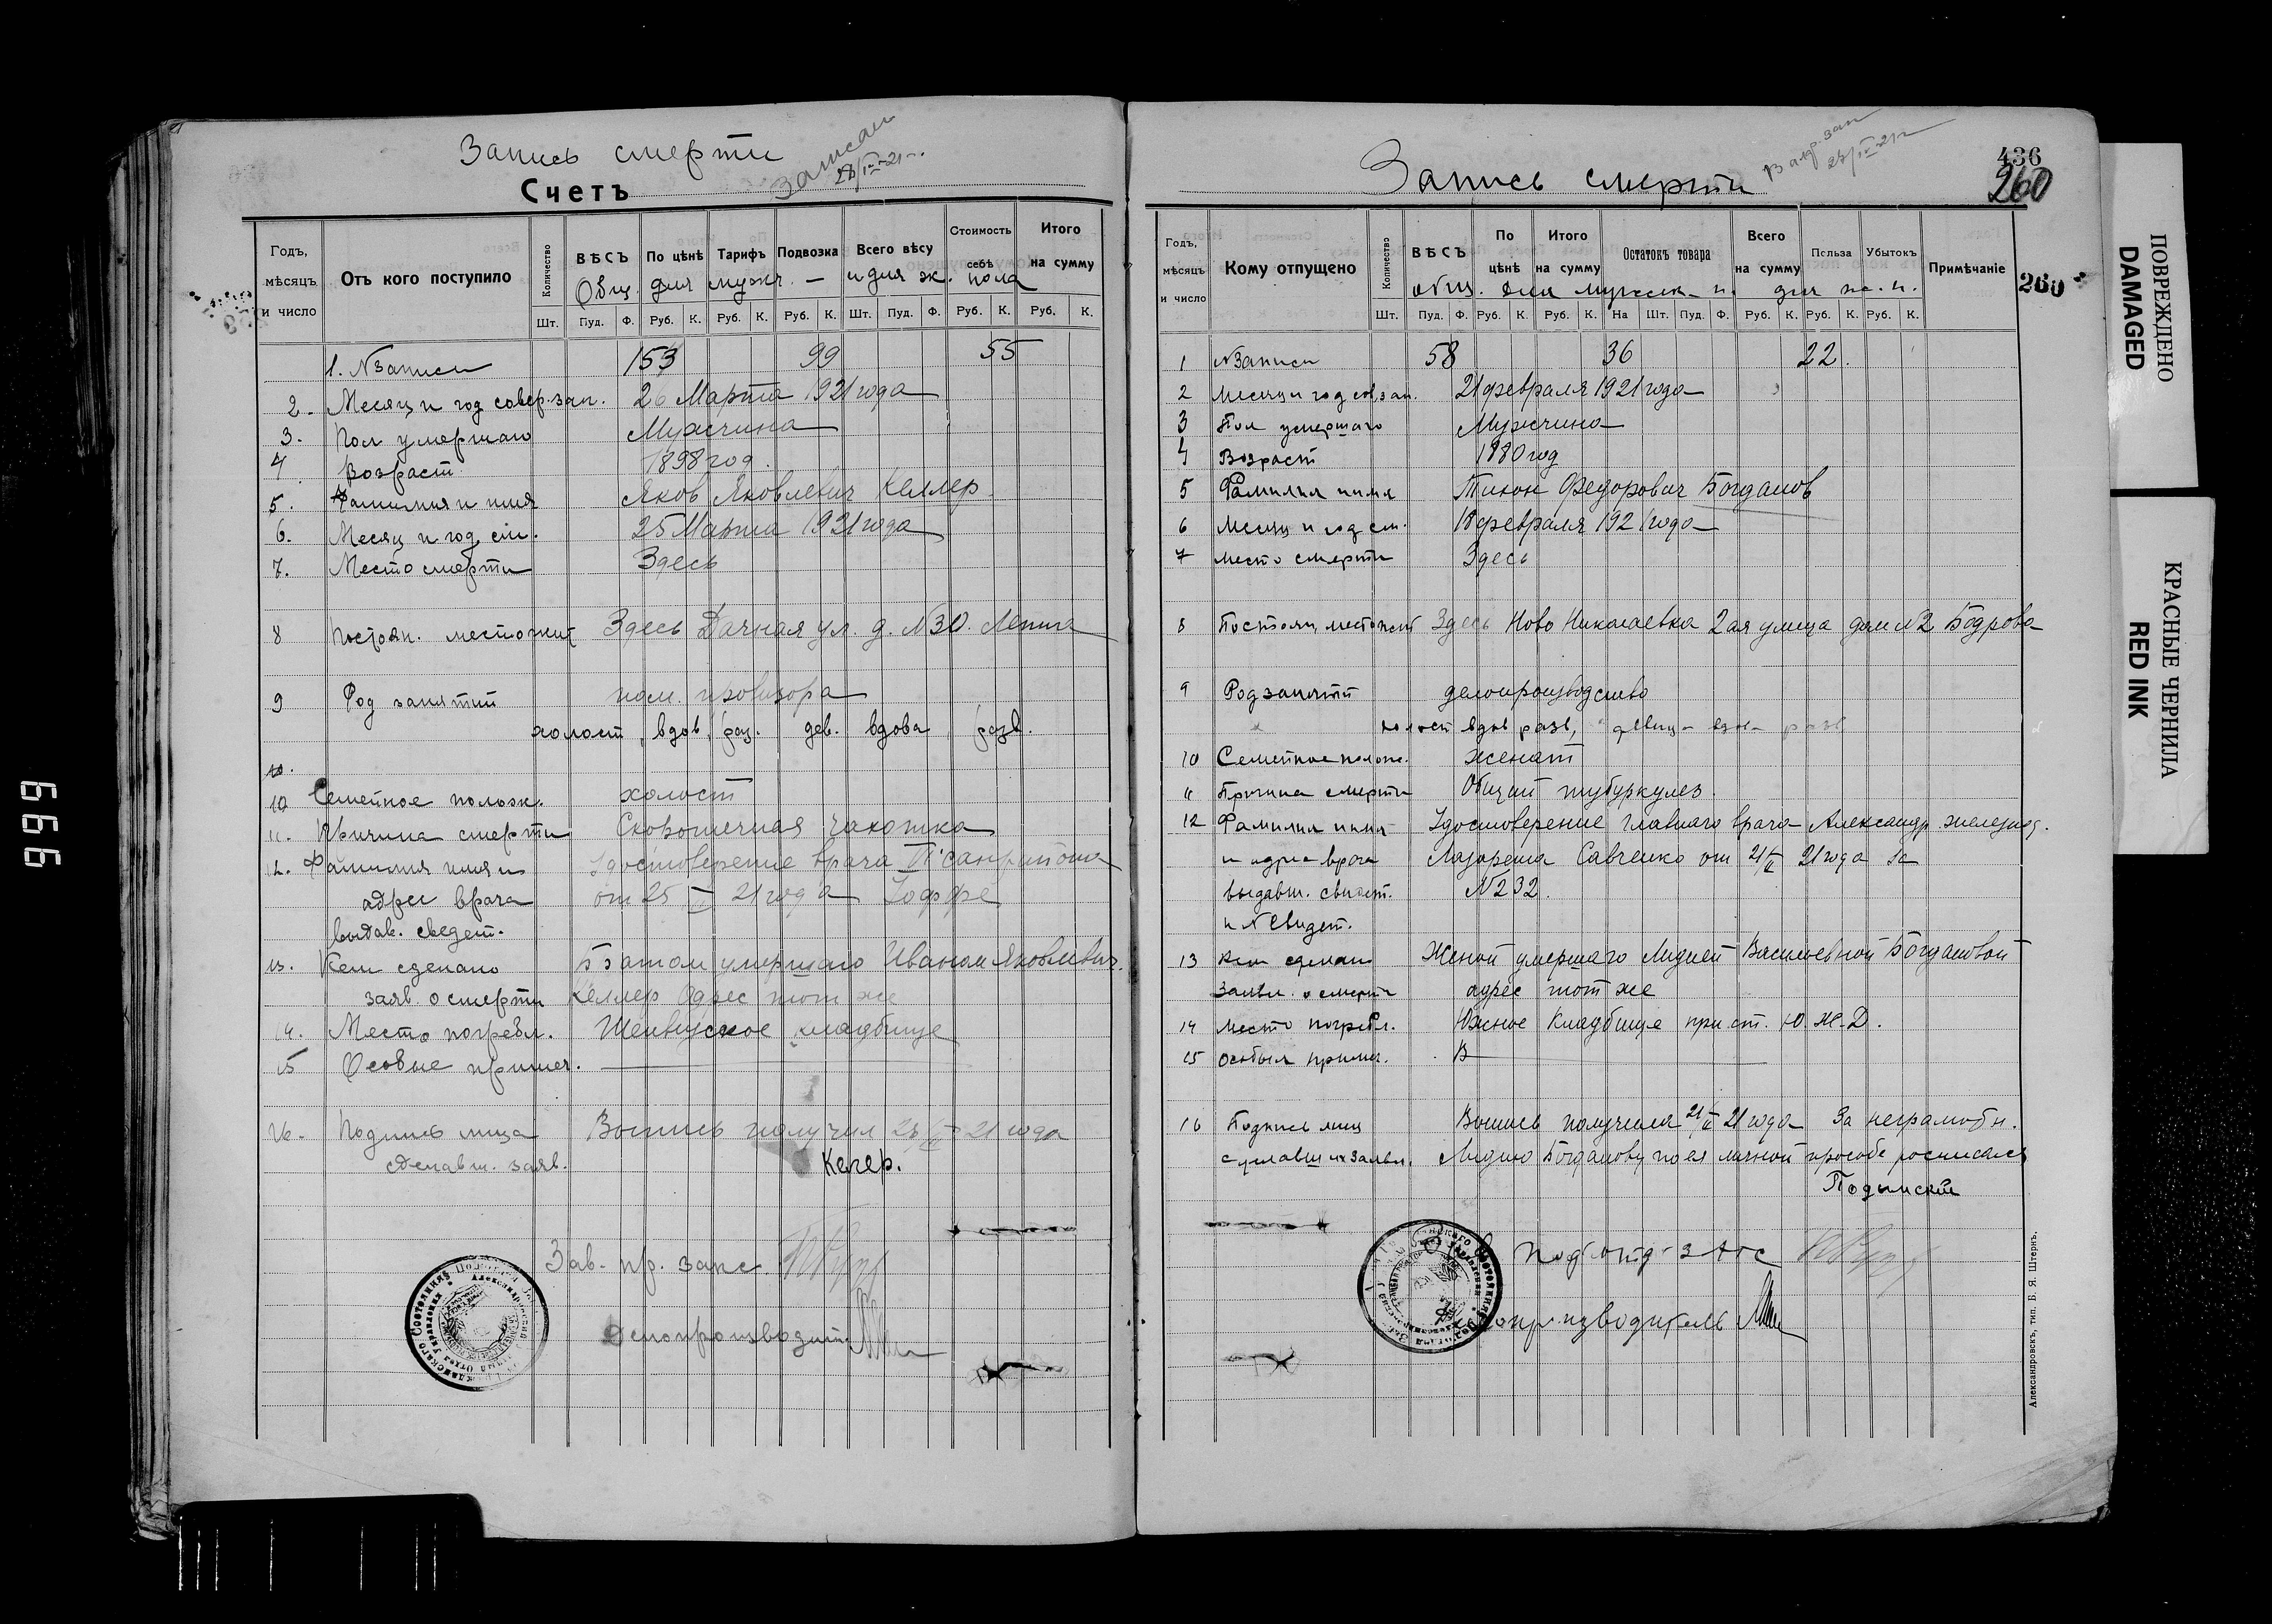 Запись смерти
Записан
28/IV-21 г.
Счетъ
Годъ, мѣсяцъ и число
Отъ кого поступило
Количество
ВѢСЪ
По цѣнѣ
Тарифъ
Подвозка
Всего вѣсу
Стоимость себѣ
Итого на сумму
Общ. для мужч. — и для ж. пола
Шт. Пуд. Ф. Руб. К. Руб. К. Руб. К. Шт. Пуд. Ф. Руб. К. Руб. К.
1. N Записи 153 99 55
2. Месяц и год совер. зап. 26 Марта 1921 года
3. Пол умершаго Мужчина
4. Возраст. 1898 год.
5. Фамилия и имя Яков Яковлевич Келлер
6. Месяц и год см. 25 Марта 1921 года
7. Место смерти Здесь
8 Постоян. местожит Здесь Дачная ул. д. N 30. Леппа
9 Род занятий пом. провизора
холост, вдов, раз. дев. вдова разв.
10.
10 Семейное полож. холост
11. Причина смерти Скоротечная чахотка
12. Фамилия имя и Удостоверение врача
адрес врача от 25 21 года Иоффе
выдав. сведет.
13. Кем сделано Братом умершаго Иваном Яковлевич.
заяв. о смерти Келлер Одрес тот же
14. Место погребл. кладбище
15 Особые примеч. —
16. Подпись лица Выпись получил 21 года
сделавш. заяв. Келер.
Зав. пр. запс.
Делопроизводит.
Запись смерти
436
260
Годъ, мѣсяцъ и число
Кому отпущено
Количество
ВѢСЪ
По цѣнѣ
Итого на сумму
Остатокъ товара
Всего на сумму
Польза
Убытокъ
Примѣчаніе
260
общ. для мужск. п. для ж. п.
Шт. Пуд. Ф. Руб. К. Руб. К. На Шт. Пуд. Ф. Руб. К. Руб. К. Руб. К.
1 N Записи 58 36 22.
2 Месяц и год сов. зап. 21 февраля 1921 года
3 Пол умершаго Мужчина
4 Возраст 1880 год
5 Фамилия и имя Тихон Федорович Богданов
6 Месяц и год см. 18 февраля 1921 года
7 Место смерти Здесь
8 Постоян. местожит Здесь Ново Николаевка 2ая улица дом N 2 Бодрова
9 Род занятий делопроизводство
холост вдов разв, девиц — вдов — разв
10 Семейное полож. женат
11 Причина смерти Общий туберкулез.
12 Фамилия имя Удостоверение главнаго врача Александр. железнод.
и адрес врача Лазарета Савченко от 21/II 21 года за
выдавш. свидет. N 232.
и N Свидет.
13 Кем сделано Женой умершаго Лидией Васильевной Богдановой
Заявл. о смерти адрес тот же
14 Место погребл. Южное Кладбище при ст. Ю. Ж. Д.
15 Особыя примеч.
16 Подпись лиц Выпись получила 21/II 21 года За неграмотн.
сделавших заявл. Лидию Богданову по ея личной прозбе росписался
Подымский
Зав подотд. Загс
Делопроизводитель
Александровскъ, тип. Б. Я. Штернъ.
ПОВРЕЖДЕНО
DAMAGED
КРАСНЫЕ ЧЕРНИЛА
RED INK
666